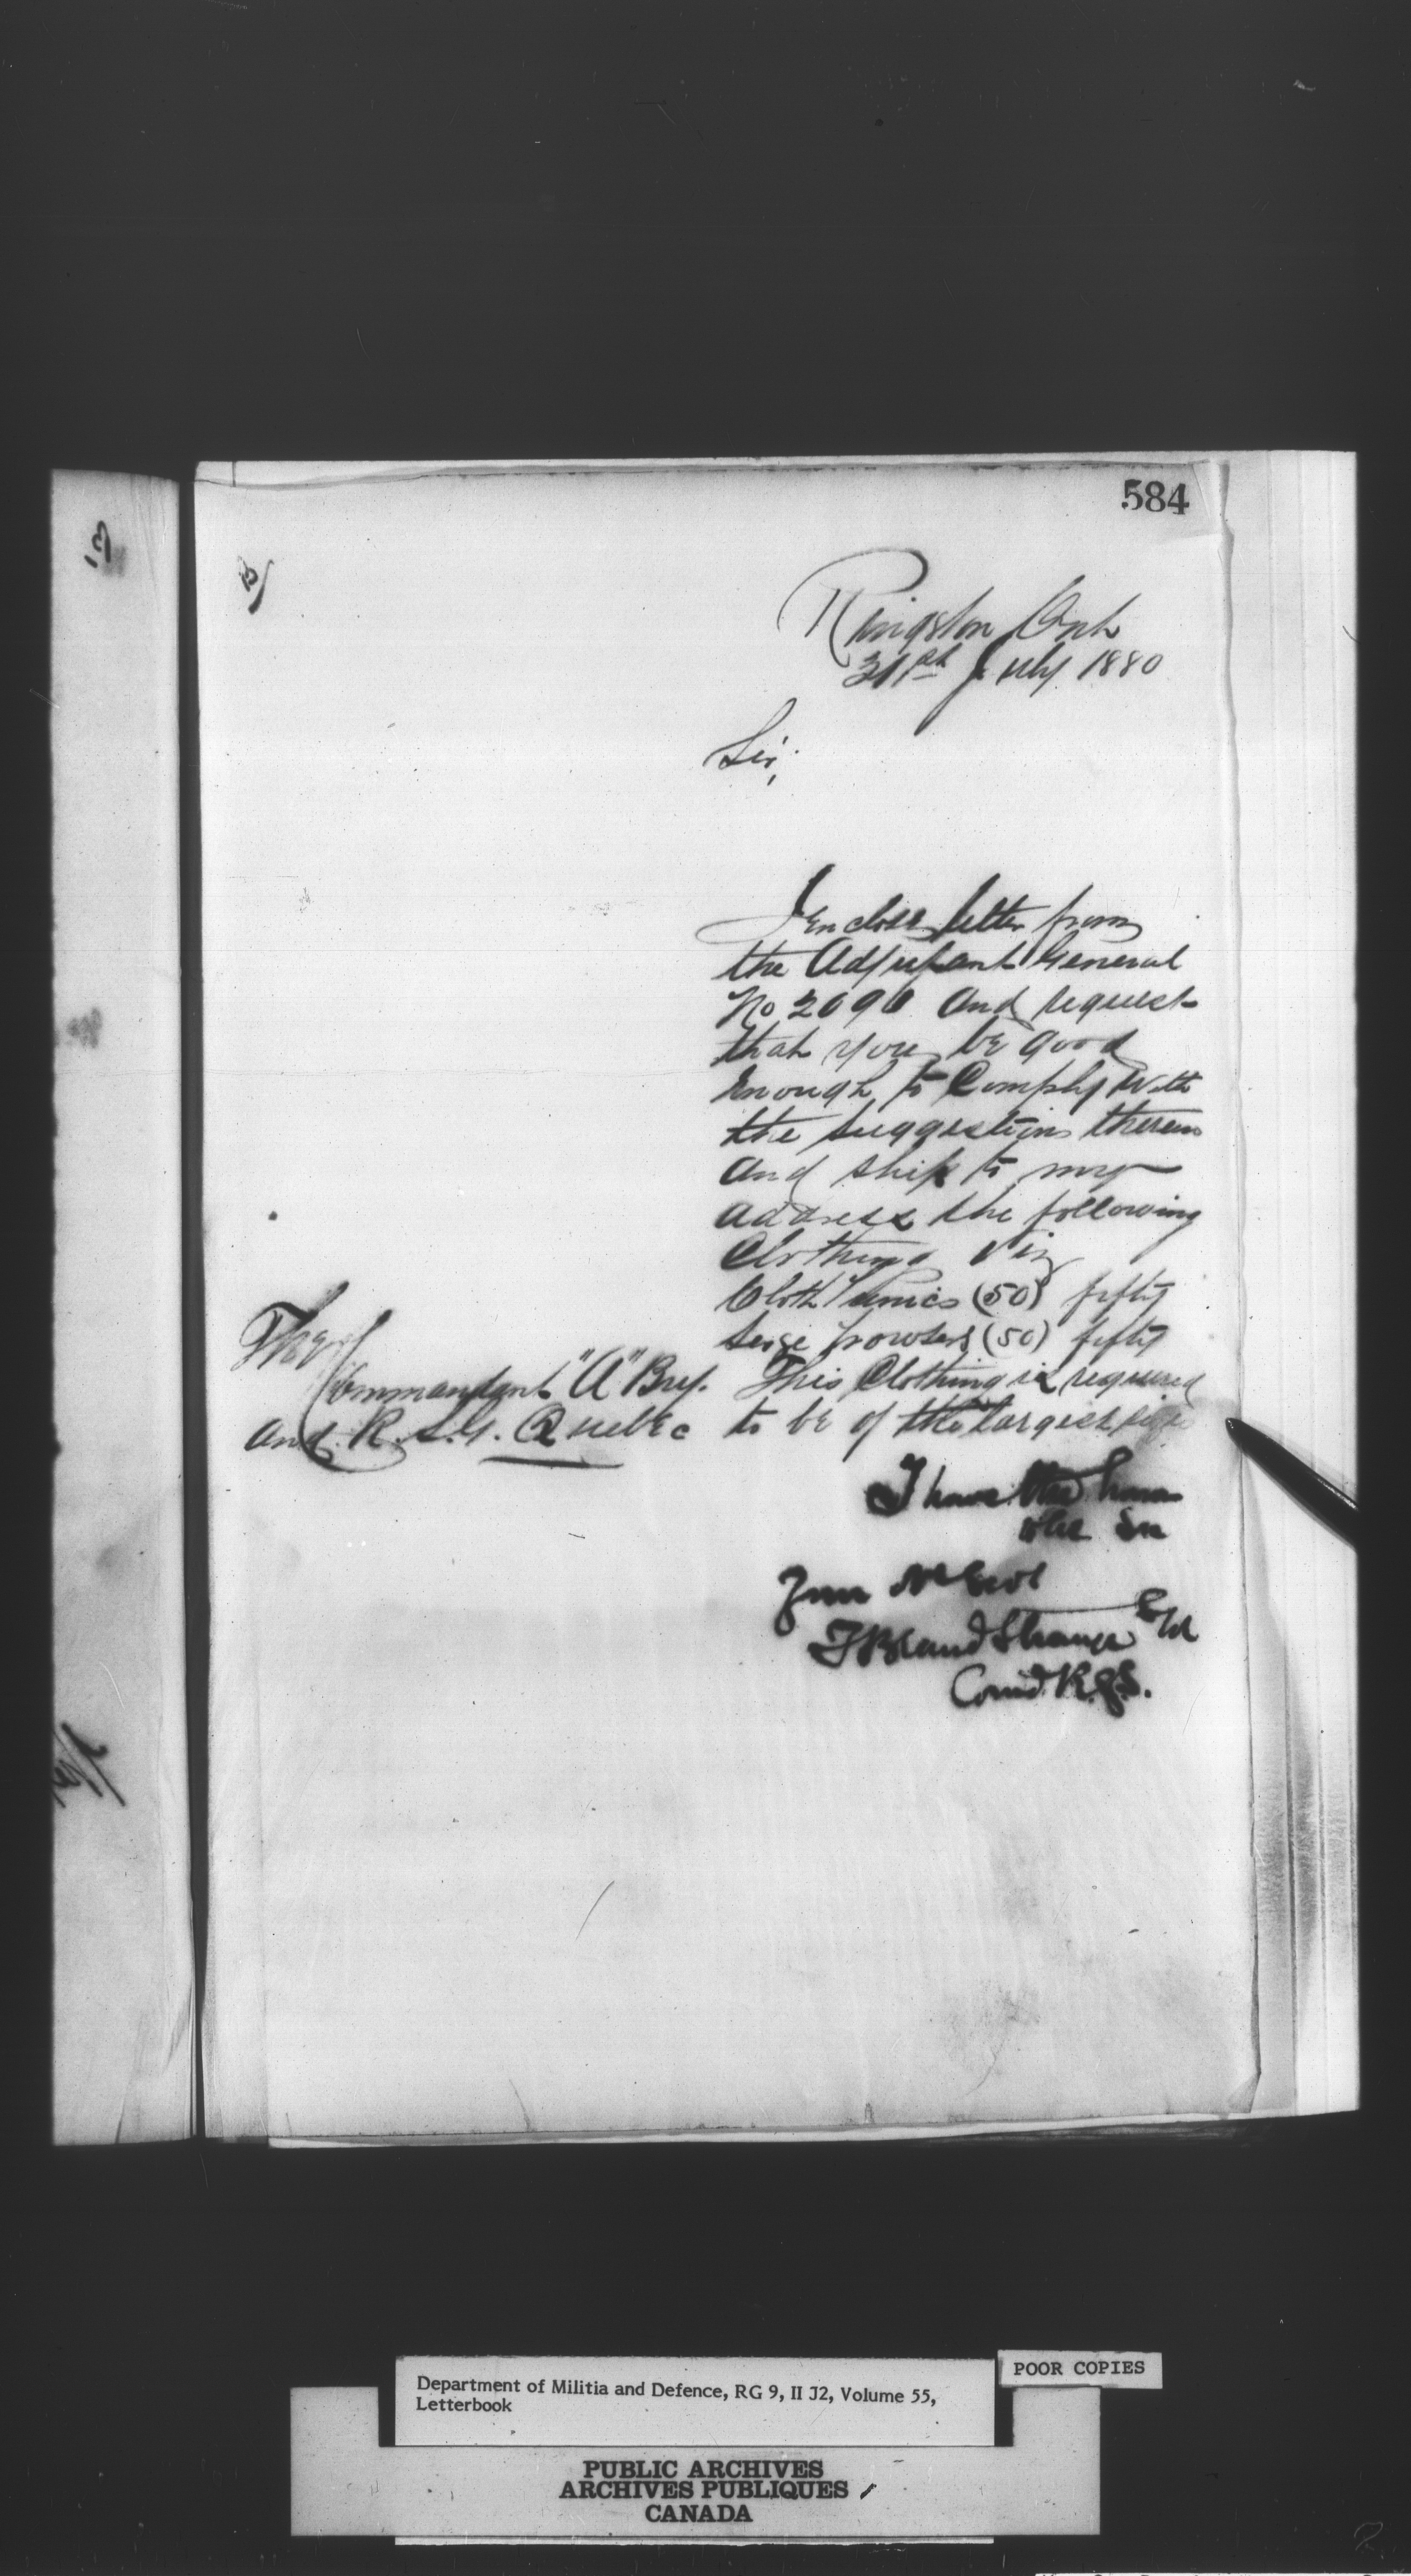 584
Kingston Ont
31st July 1880
Sir,
I Enclose letter from
the Adjutant General
No 2090 and request
that you be good
Enough to Comply With
the suggestions therein
and ship to my
address the following
Clothing Viz
Cloth Tunics (50) fifty
Serge Trowsers (50) fifty
This Clothing is required
to be of the largest size
The
Commandant "A" Bty.
and R. S. G. Quebec
I have the hono
to be Sir
Your
T Bland Strange
Comd.
Department of Militia and Defence, RG 9, II J2, Volume 55,
Letterbook
POOR COPIES
PUBLIC ARCHIVES
ARCHIVES PUBLIQUES
CANADA